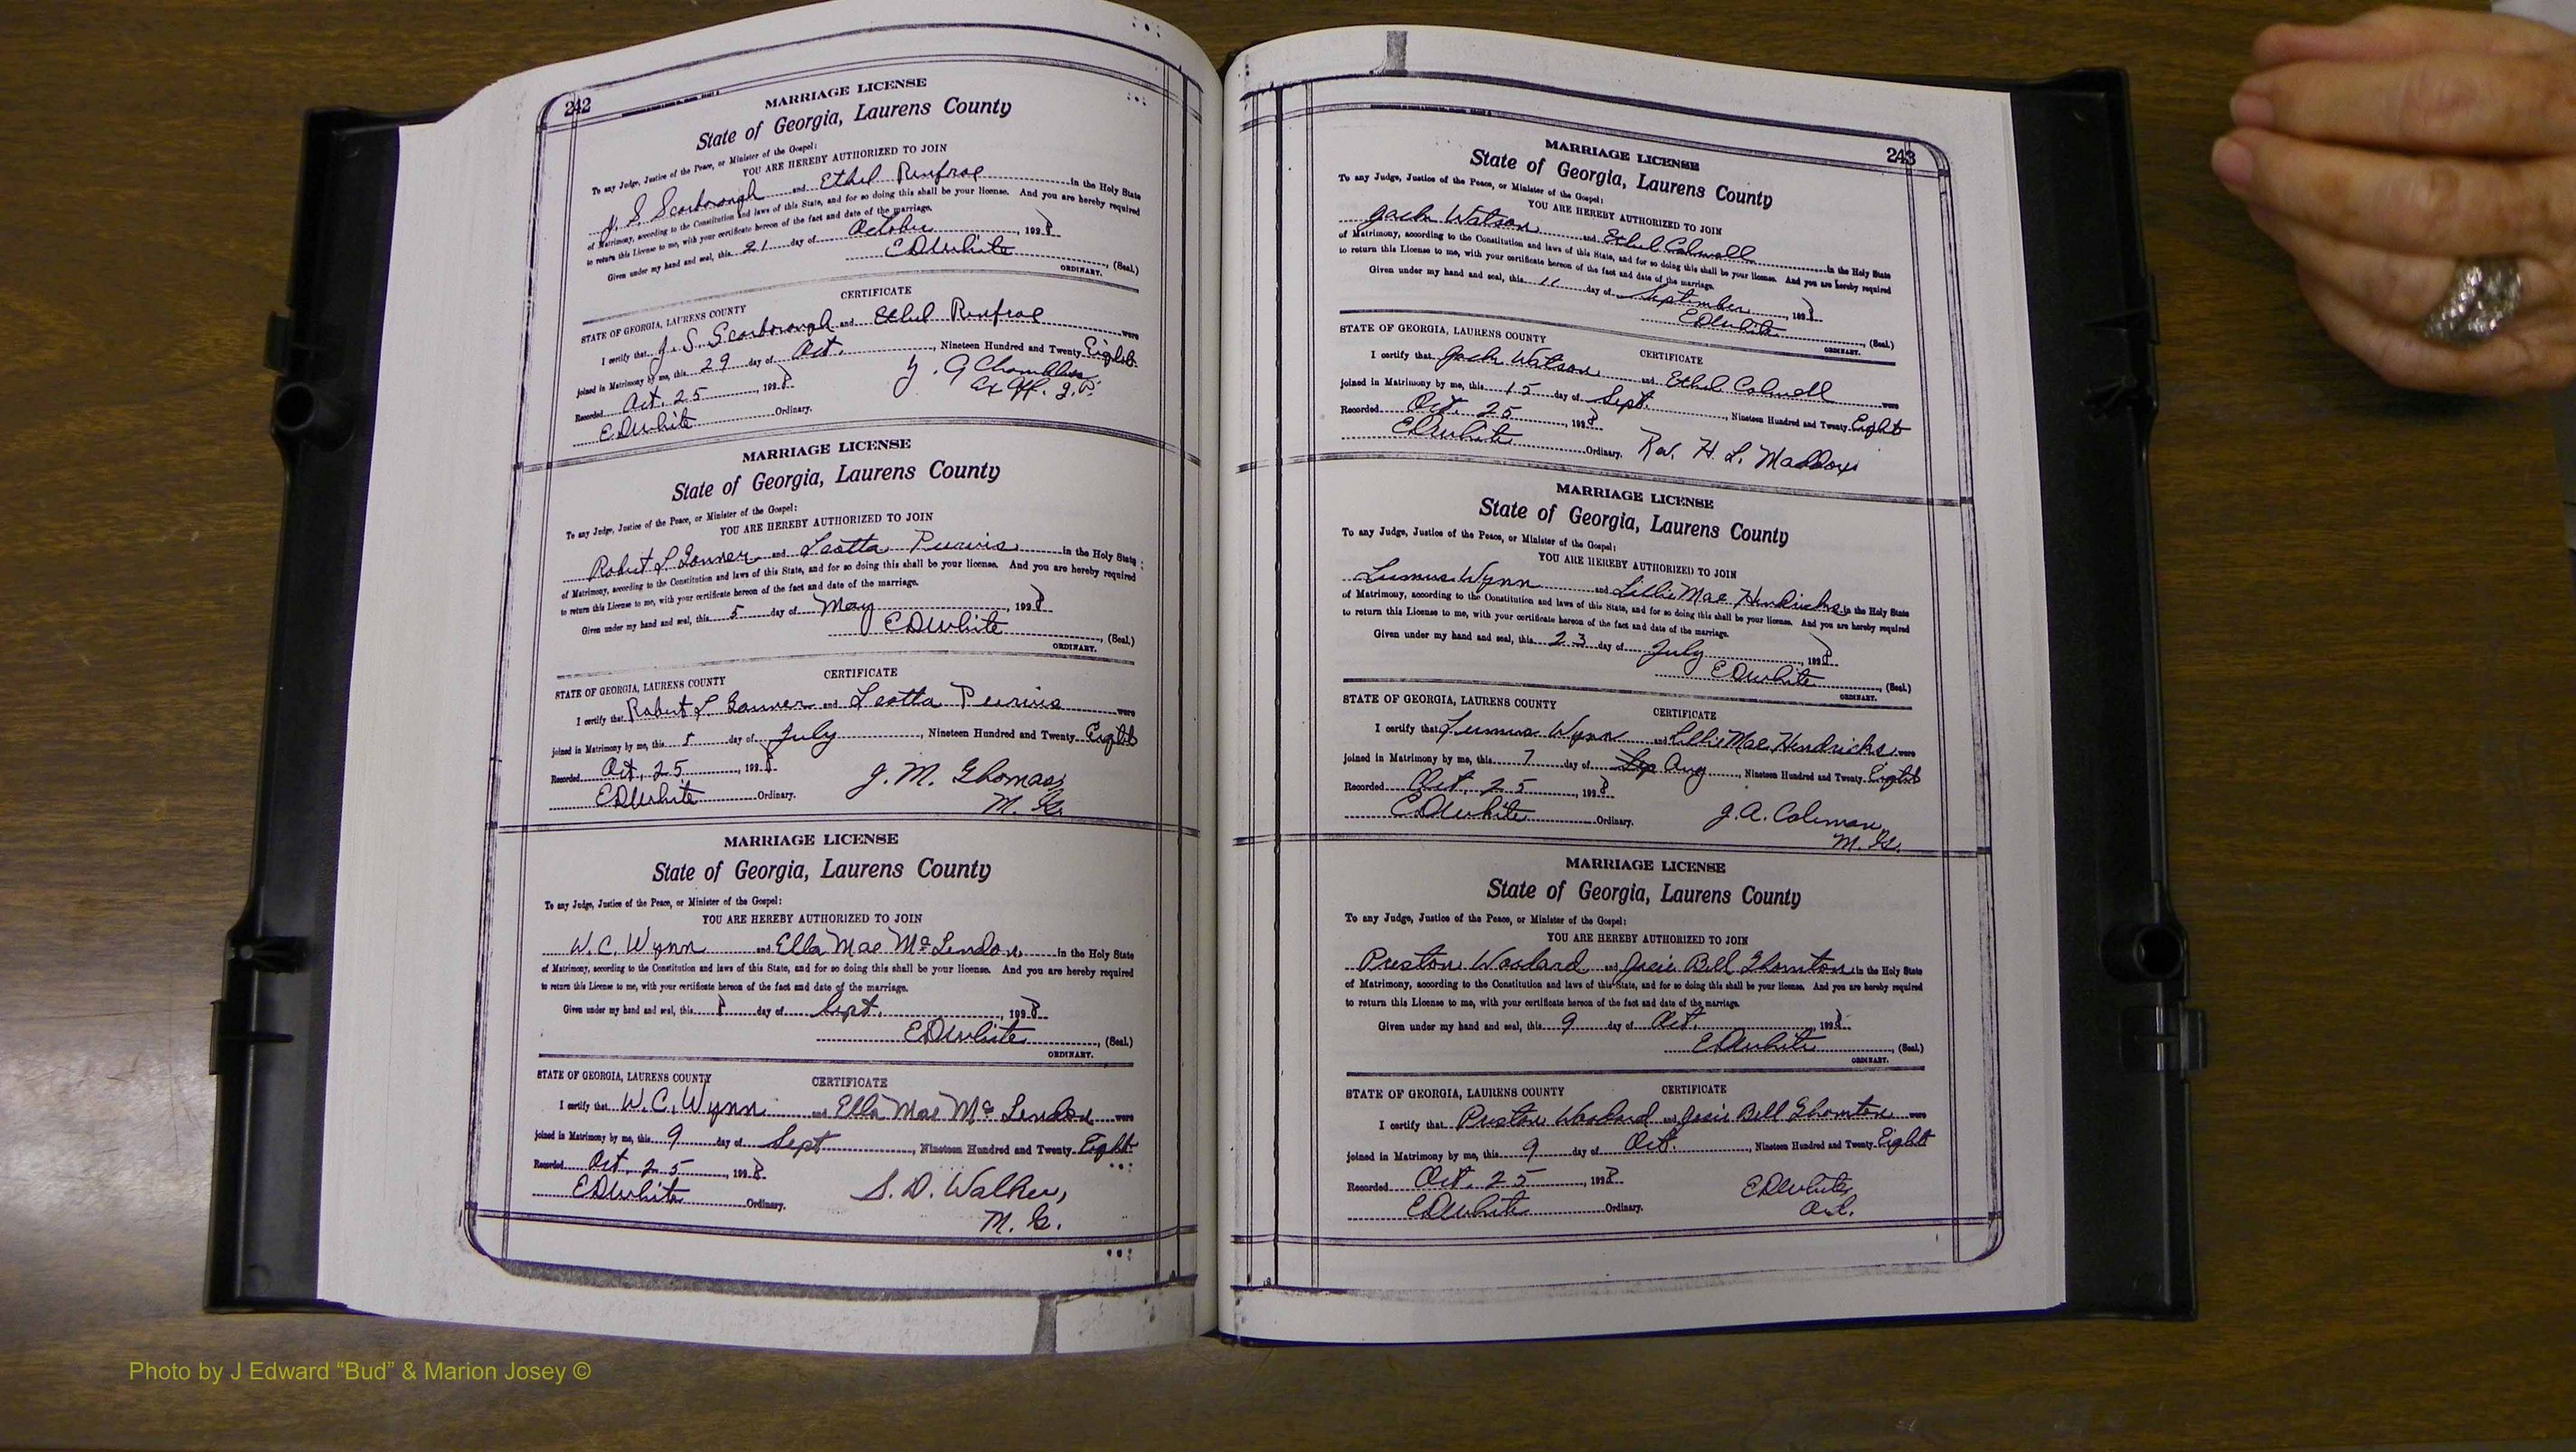 242
MARRIAGE LICENSE
State of Georgia, Laurens County
To any Judge, Justice of the Peace, or Minister of the Gospel:
YOU ARE HEREBY AUTHORIZED TO JOIN
J. S. Scarborough and Ethel Renfroe in the Holy State
of Matrimony, according to the Constitution and laws of this State, and for so doing this shall be your license. And you are hereby required
to return this License to me, with your certificate hereon of the fact and date of the marriage.
Given under my hand and seal, this 21 day of October, 1928
EDWhite, (Seal.)
ORDINARY.
CERTIFICATE
STATE OF GEORGIA, LAURENS COUNTY
I certify that J. S. Scarborough and Ethel Renfroe were
joined in Matrimony by me, this 29 day of Oct., Nineteen Hundred and Twenty Eight
Recorded Oct. 25, 1928
EDWhite Ordinary.
Ex Off. J.P.
MARRIAGE LICENSE
State of Georgia, Laurens County
To any Judge, Justice of the Peace, or Minister of the Gospel:
YOU ARE HEREBY AUTHORIZED TO JOIN
Robert L and Leotta Purvis in the Holy State
of Matrimony, according to the Constitution and laws of this State, and for so doing this shall be your license. And you are hereby required
to return this License to me, with your certificate hereon of the fact and date of the marriage.
Given under my hand and seal, this 5 day of May, 1928
EDWhite, (Seal.)
ORDINARY.
CERTIFICATE
STATE OF GEORGIA, LAURENS COUNTY
I certify that Robert L and Leotta Purvis were
joined in Matrimony by me, this 5 day of July, Nineteen Hundred and Twenty Eight
Recorded Oct. 25, 1928
EDWhite Ordinary.
J. M. Thomas,
M. G.
MARRIAGE LICENSE
State of Georgia, Laurens County
To any Judge, Justice of the Peace, or Minister of the Gospel:
YOU ARE HEREBY AUTHORIZED TO JOIN
W. C. Wynn and Ella Mae McLendon in the Holy State
of Matrimony, according to the Constitution and laws of this State, and for so doing this shall be your license. And you are hereby required
to return this License to me, with your certificate hereon of the fact and date of the marriage.
Given under my hand and seal, this 8 day of Sept., 1928
EDWhite, (Seal.)
ORDINARY.
STATE OF GEORGIA, LAURENS COUNTY CERTIFICATE
I certify that W. C. Wynn and Ella Mae McLendon were
joined in Matrimony by me, this 9 day of Sept, Nineteen Hundred and Twenty Eight
Recorded Oct. 25, 1928
EDWhite Ordinary.
S. D. Walker,
M. G.
243
MARRIAGE LICENSE
State of Georgia, Laurens County
To any Judge, Justice of the Peace, or Minister of the Gospel:
YOU ARE HEREBY AUTHORIZED TO JOIN
Jack Watson and Ethel Colwell in the Holy State
of Matrimony, according to the Constitution and laws of this State, and for so doing this shall be your license. And you are hereby required
to return this License to me, with your certificate hereon of the fact and date of the marriage.
Given under my hand and seal, this 11 day of September, 1928
EDWhite, (Seal.)
ORDINARY.
STATE OF GEORGIA, LAURENS COUNTY CERTIFICATE
I certify that Jack Watson and Ethel Colwell were
joined in Matrimony by me, this 15 day of Sept., Nineteen Hundred and Twenty Eight
Recorded Oct. 25, 1928
EDWhite Ordinary.
Rev. H. L. Maddox
MARRIAGE LICENSE
State of Georgia, Laurens County
To any Judge, Justice of the Peace, or Minister of the Gospel:
YOU ARE HEREBY AUTHORIZED TO JOIN
Lumus Wynn and Lillie Mae Hendricks in the Holy State
of Matrimony, according to the Constitution and laws of this State, and for so doing this shall be your license. And you are hereby required
to return this License to me, with your certificate hereon of the fact and date of the marriage.
Given under my hand and seal, this 23 day of July, 1928
EDWhite, (Seal.)
ORDINARY.
STATE OF GEORGIA, LAURENS COUNTY CERTIFICATE
I certify that Lumus Wynn and Lillie Mae Hendricks were
joined in Matrimony by me, this 7 day of Sep Aug, Nineteen Hundred and Twenty Eight
Recorded Oct. 25, 1928
EDWhite Ordinary.
J. A. Coleman,
M. G.
MARRIAGE LICENSE
State of Georgia, Laurens County
To any Judge, Justice of the Peace, or Minister of the Gospel:
YOU ARE HEREBY AUTHORIZED TO JOIN
Preston Woodard and Josie Bell Thornton in the Holy State
of Matrimony, according to the Constitution and laws of this State, and for so doing this shall be your license. And you are hereby required
to return this License to me, with your certificate hereon of the fact and date of the marriage.
Given under my hand and seal, this 9 day of Oct., 1928
EDWhite, (Seal.)
ORDINARY.
STATE OF GEORGIA, LAURENS COUNTY CERTIFICATE
I certify that Preston Woodard and Josie Bell Thornton were
joined in Matrimony by me, this 9 day of Oct., Nineteen Hundred and Twenty Eight
Recorded Oct. 25, 1928
EDWhite Ordinary.
EDWhite,
Ord.
Photo by J Edward “Bud” & Marion Josey ©